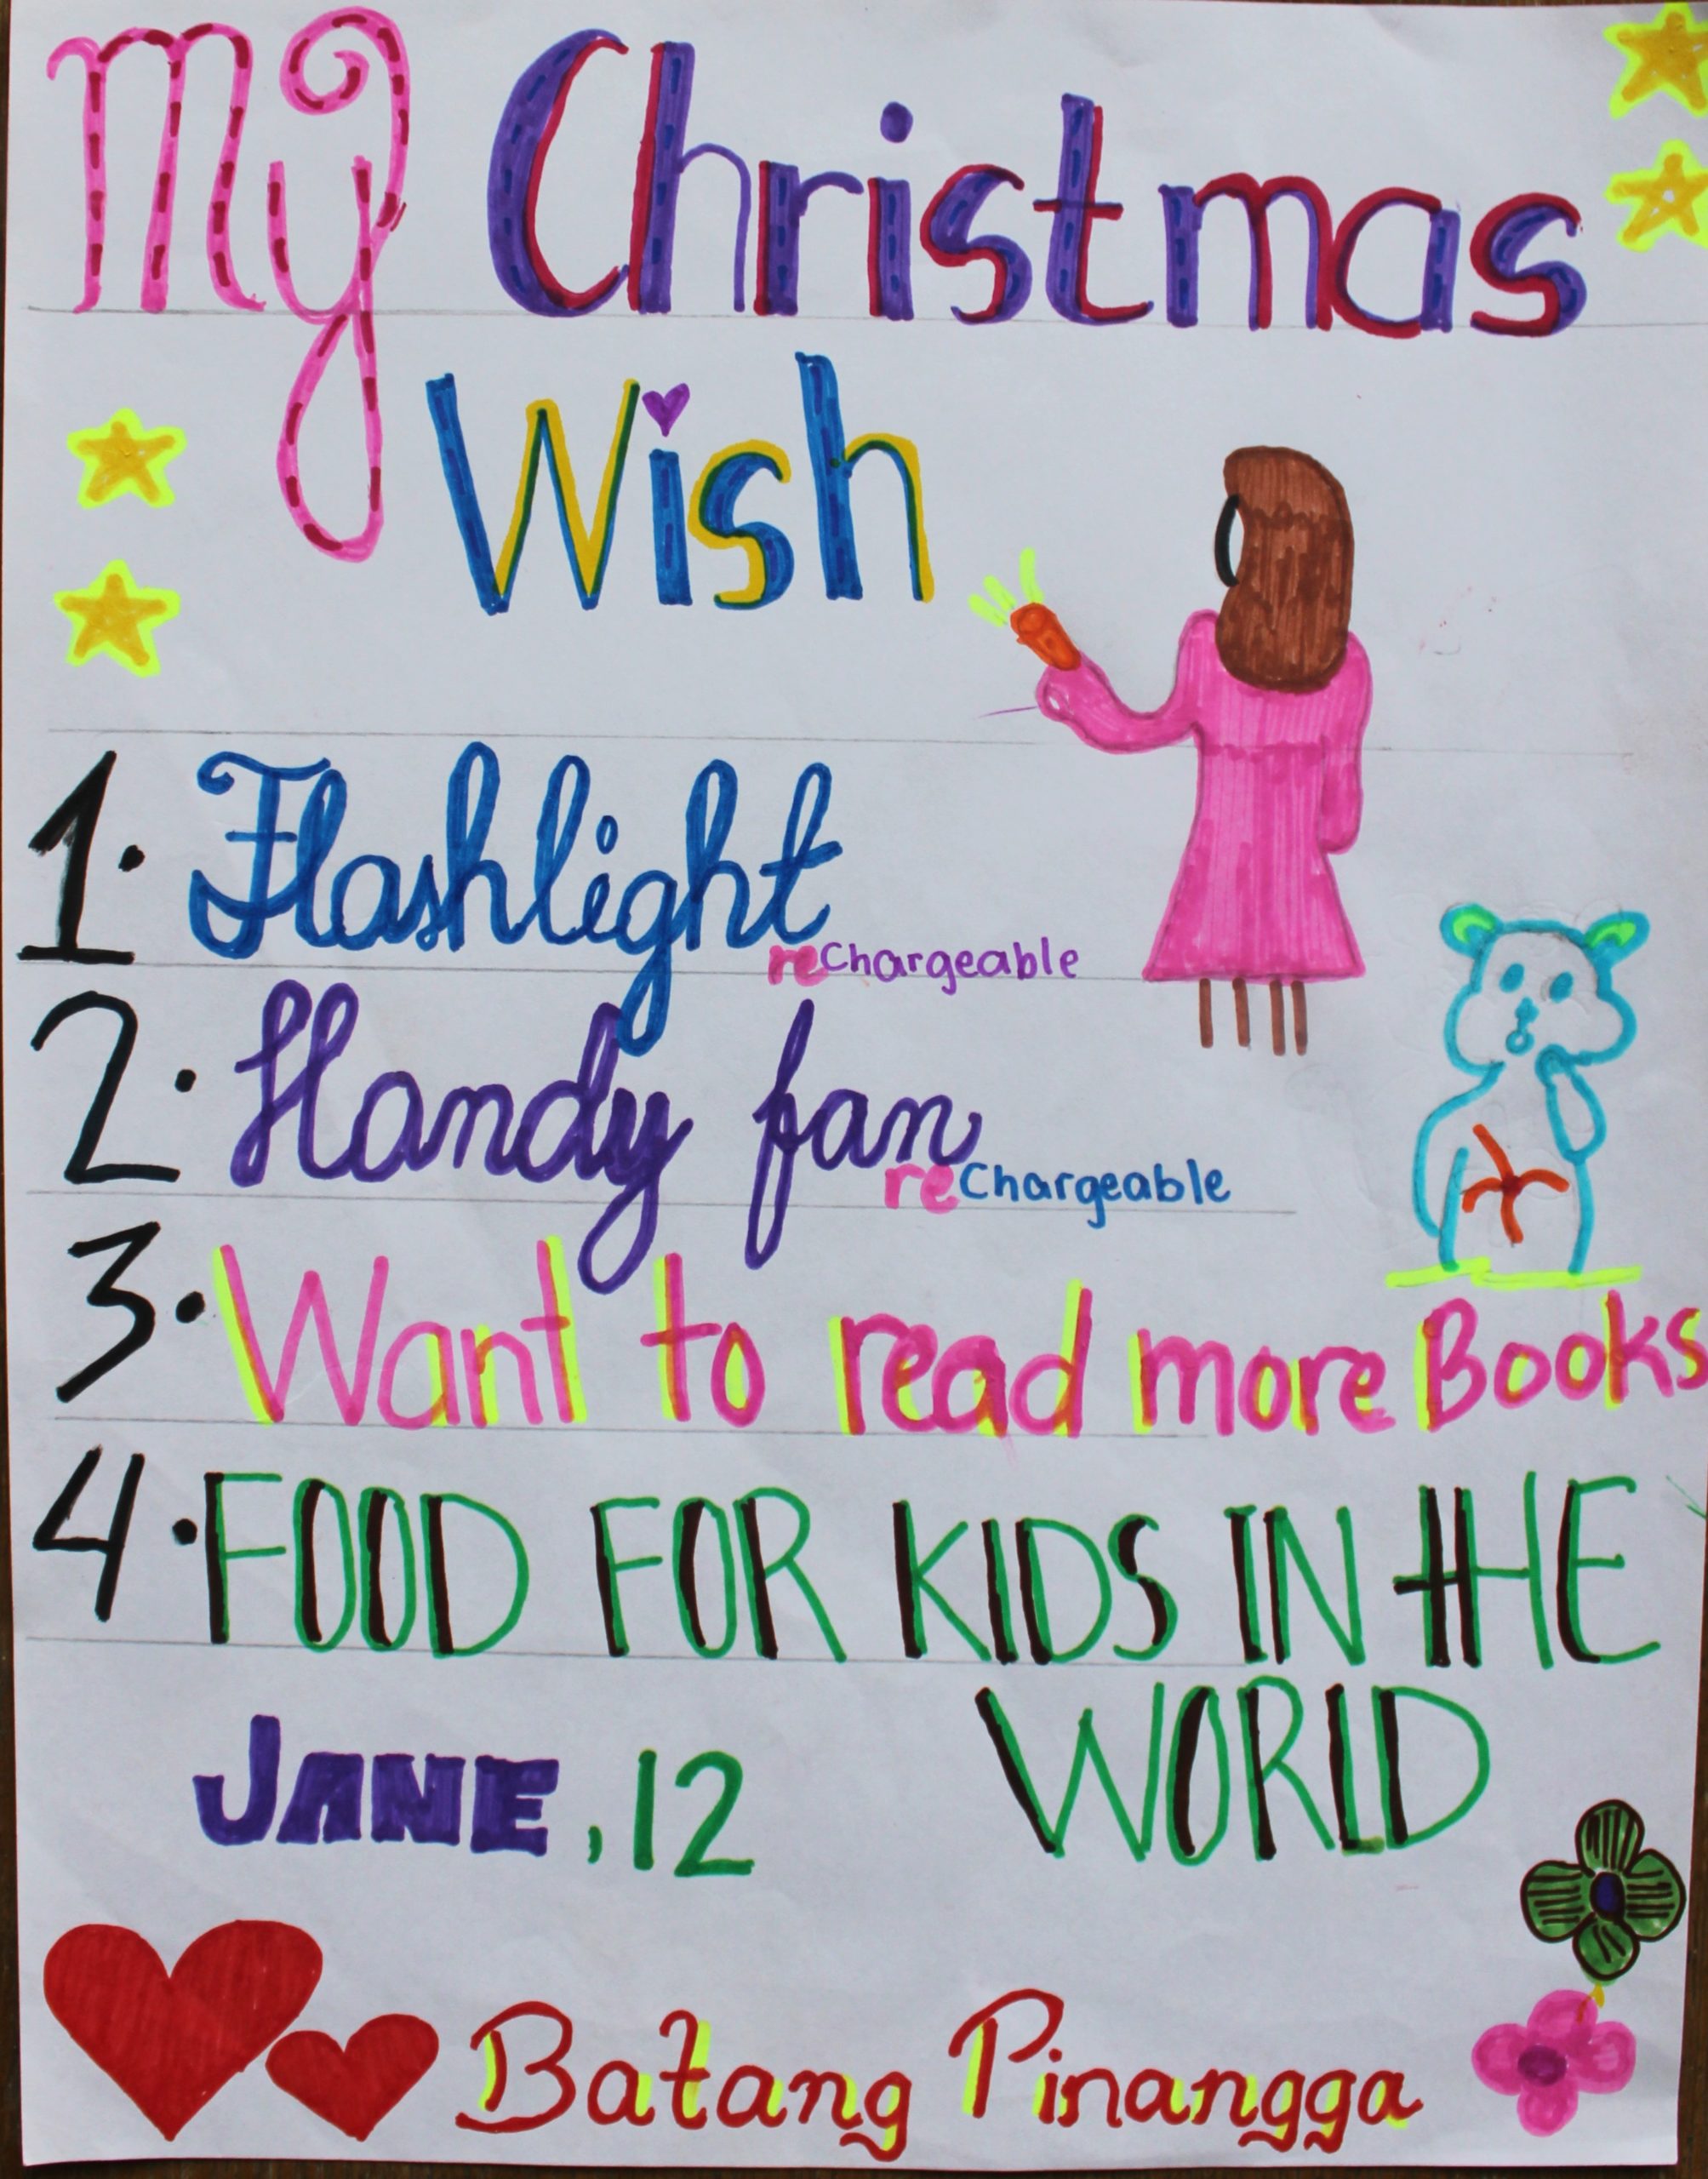 My Christmas
Wish
1. Flashlight
rechargeable
2. Handy fan
rechargeable
3. Want to read more Books
4. FOOD FOR KIDS IN tHE
WORLD
JANE, 12
Batang Pinangga